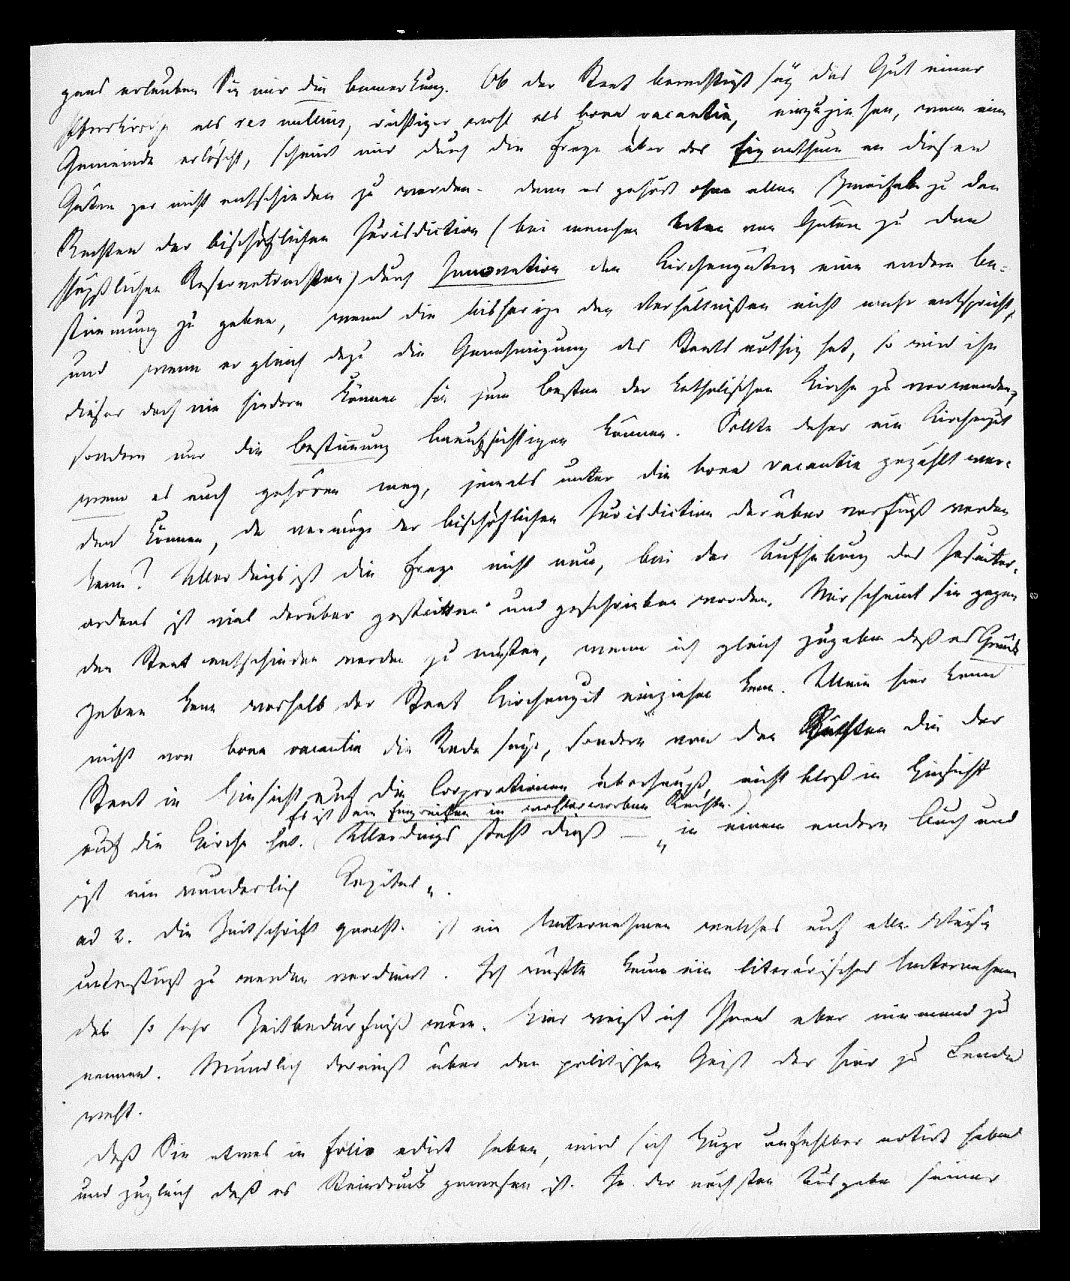 gens erlauben Sie mir die Bemerkung. Ob der Staat berechtigt sey das Gut einer
Pfarrkirche als res nullius, richtiger wohl als bona vacantia, einzuziehen, wenn eine
Gemeinde erlöscht, scheint mir durch die Frage über das Eigenthum an diesen
Gütern gar nicht entschieden zu werden. denn es gehört ohne allen Zweifel zu den
Rechten der bischöflichen Jurisdiction (bei manchen Arten von Gütern zu den
päpstlichen Reservatrechten) durch Innovation den Kirchengütern eine andere Be-
stimmung zu geben, wenn die bisherige den Verhältnißen nicht mehr entspricht,
und wenn er gleich dazu die Genehmigung des Staats nöthig hat, so wird ihn
dieser doch nie hindern können sie zum Besten der katholischen Kirche zu verwenden,
sondern nur die Bestimmung beaufsichtigen können. Sollte daher ein Kirchengut
wem es auch gehören mag, jemals unter die bona vacantia gezählt wer-
den können, da vermöge der bischöflichen Jurisdiction darüber verfügt werden
kann? Allerdings ist die Frage nicht neu, bei der Aufhebung des Jesuiter-
ordens ist viel darüber gestritten und geschrieben worden. Mir scheint sie gegen
den Staat entschieden werden zu müssen, wenn ich gleich zugebe daß es Gründe
geben kann weshalb der Staat Kirchengut einziehen kann. Allein hier kann
nicht von bona vacantia die Rede seyn, sondern von den Rechten die der
Staat in Hinsicht auf die Corporationen überhaupt, nicht bloß in Hinsicht
Es ist ein Eingreifen in wohlerworbene Rechte.)
auf die Kirche hat. (Allerdings steht dieß — „in einem andern Buch und
ist ein wunderlich Kapitel„.
ad 2. Die Zeitschrift ist ein Unternehmen welches auf alle Weise
unterstüzt zu werden verdient. Ich wüßte kaum ein literärisches Unternehmen
das so sehr Zeitbedürfniß wäre. Hier weiß ich Ihnen aber niemand zu
nennen. Mündlich dereinst über den politischen Geist der hier zu Lande
weht.
Daß Sie etwas in folio edirt haben, wird sich Hugo unfehlbar notirt haben
und zugleich daß es Steindruck gewesen ist. In der nächsten Ausgabe seiner